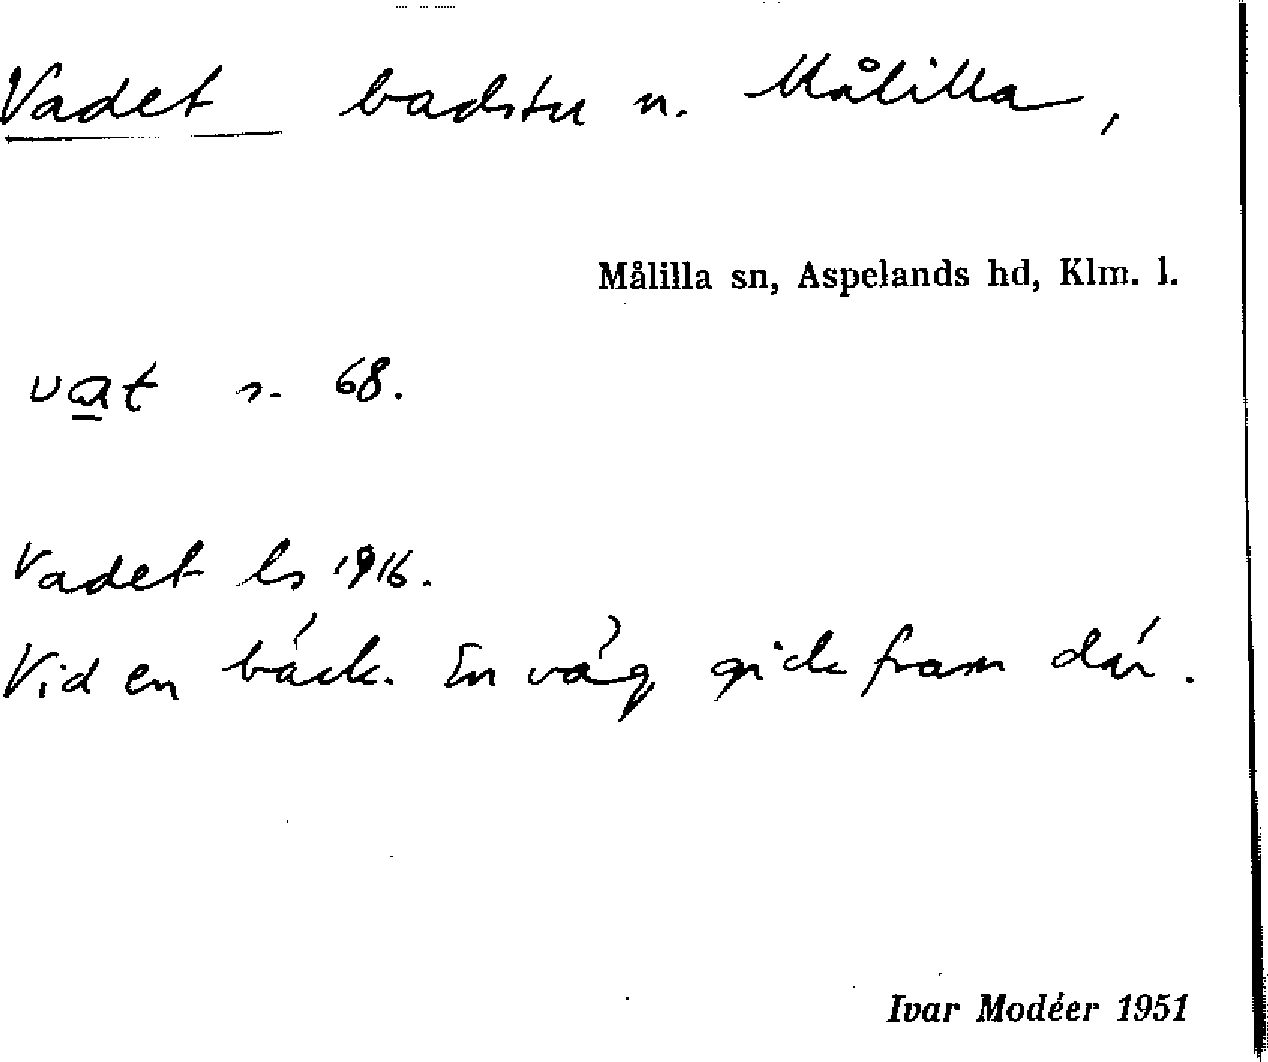 Vadet badstu u. Målilla,
Målilla sn, Aspelands hd, Klm. l.
vat s. 68.
Vadet ls 1916.
Vid en bäck. En väg gick fram där.
Ivar Modéer 1951